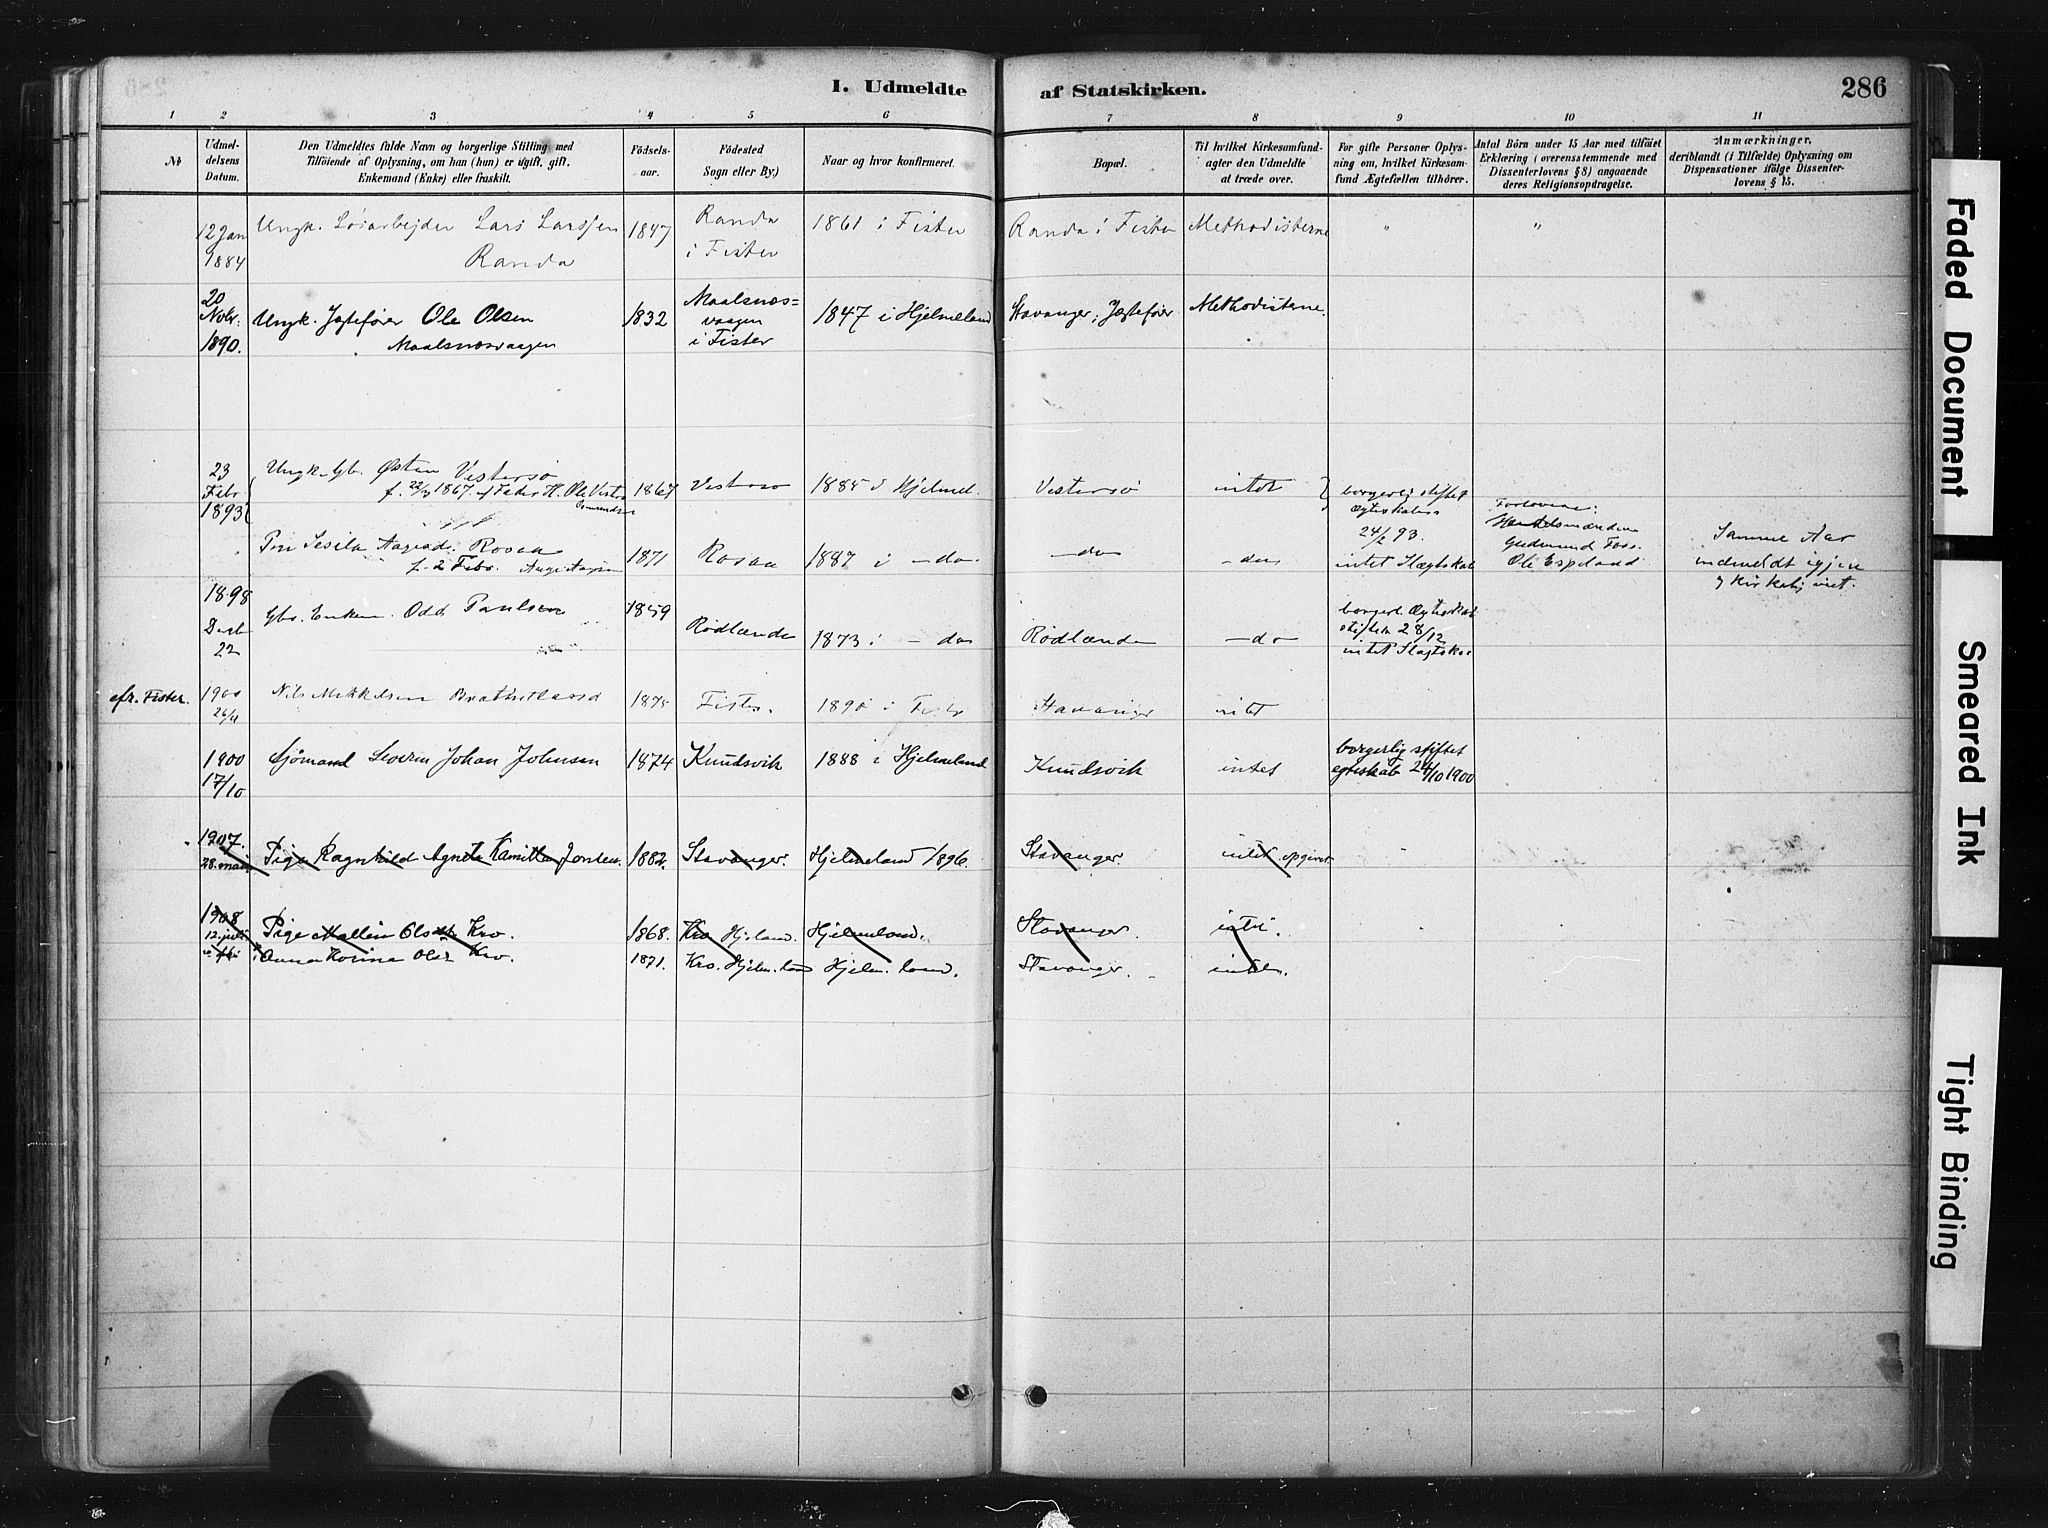 I. Udmeldte af Statskirken. 286
1 2 3 4 5 6 7 8 9 10 11
No
Udmeldelsens Datum.
Den Udmeldtes fulde Navn og borgerlige Stilling med
Tilföiende af Oplysning, om han (hun) er ugift, gift,
Enkemand (Enke) eller fraskilt.
Födselsaar.
Födested
Sogn eller By.)
Naar og hvor konfirmeret.
Bopæl.
Til hvilket Kirkesamfund
agter den Udmeldte
at træde over.
For gifte Personer Oplysning om, hvilket Kirkesamfund Ægtefællen tilhörer.
Antal Börn under 15 Aar med tilföiet
Erklæring (overensstemmende med
Dissenterlovens § 8) angaaende
deres Religionsopdragelse.
Anmærkninger,
deriblandt (i Tilfælde) Oplysning om
Dispensationer ifölge Dissenterlovens § 15.
12 Jan 1884 Ungk. Løsarbejder Lars Larssen Randa 1847 Randa i Fister 1861 i Fister Randa i Fister Methodisterne " "
20 Novbr. 1890. Ungk. Jægtefører Ole Olsen Maalsnæsvaagen 1832 Maalsnæs=vaagen i Fister 1847 i Hjelmeland Stavanger, Jægtefører Methodisterne.
23 Febr 1893 Ungk. Gb. Østen Vestersø f. 22/3 1867 af Ole 1867 Vestersø 1885 i Hjelmel. Vestersø intet borgerlig stiftet Ægteskab 24/2 93. intet Slægtskab
Forlovere: Gudmund Foss. Ole Espeland
Rosaa f. 2 Febr. 1871 Rosaa 1887 i - do - do - do Samme Aar indmeldt igjen
1898 Decbr 22 Gbr. Enkem. Odd Paulsen 1859 Rødlænde 1873 i - do Rødlænde - do borgerl. Ægteskab stiftet 28/12 intet Slægtskab
afr. Fister. 1900 26/4 Nils Mikkelsen 1875 Fister. 1890 i Fister Stavanger intet
1900 17/10 Sjømand Severin Johan Johnsen 1874 Knudsvik 1888 i Hjelmeland Knudsvik intet borgerlig stiftet egteskab 24/10 1900
1907. 28. mai Pige Ragnhild Agneta Kamilla 1882. Stavanger. Hjelmeland 1896. Stavanger. intet opgivet
1908 12. juli Pige Mallin Olsdtr Kro. 1868. Kro Hjeland. Hjelmeland. Stavanger. intet.
Anna Korine Olsd. Kro. 1871. Kro. Hjelm.land Hjelm.land. Stavanger. intet.
Faded Document
Smeared Ink
Tight Binding